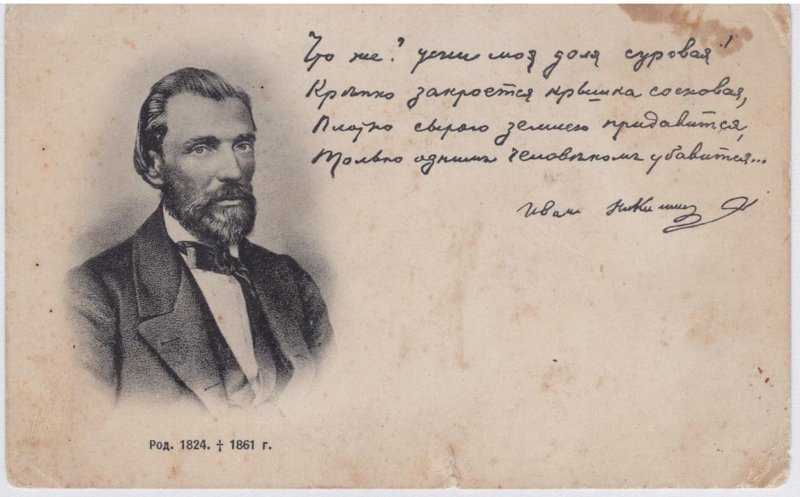 Что же? усни моя доля суровая!
Крѣпко закроется крышка сосновая,
Плотно сырою землею придавится,
Только однимъ человѣкомъ убавится...
Иван Никитин
Род. 1824. † 1861 г.